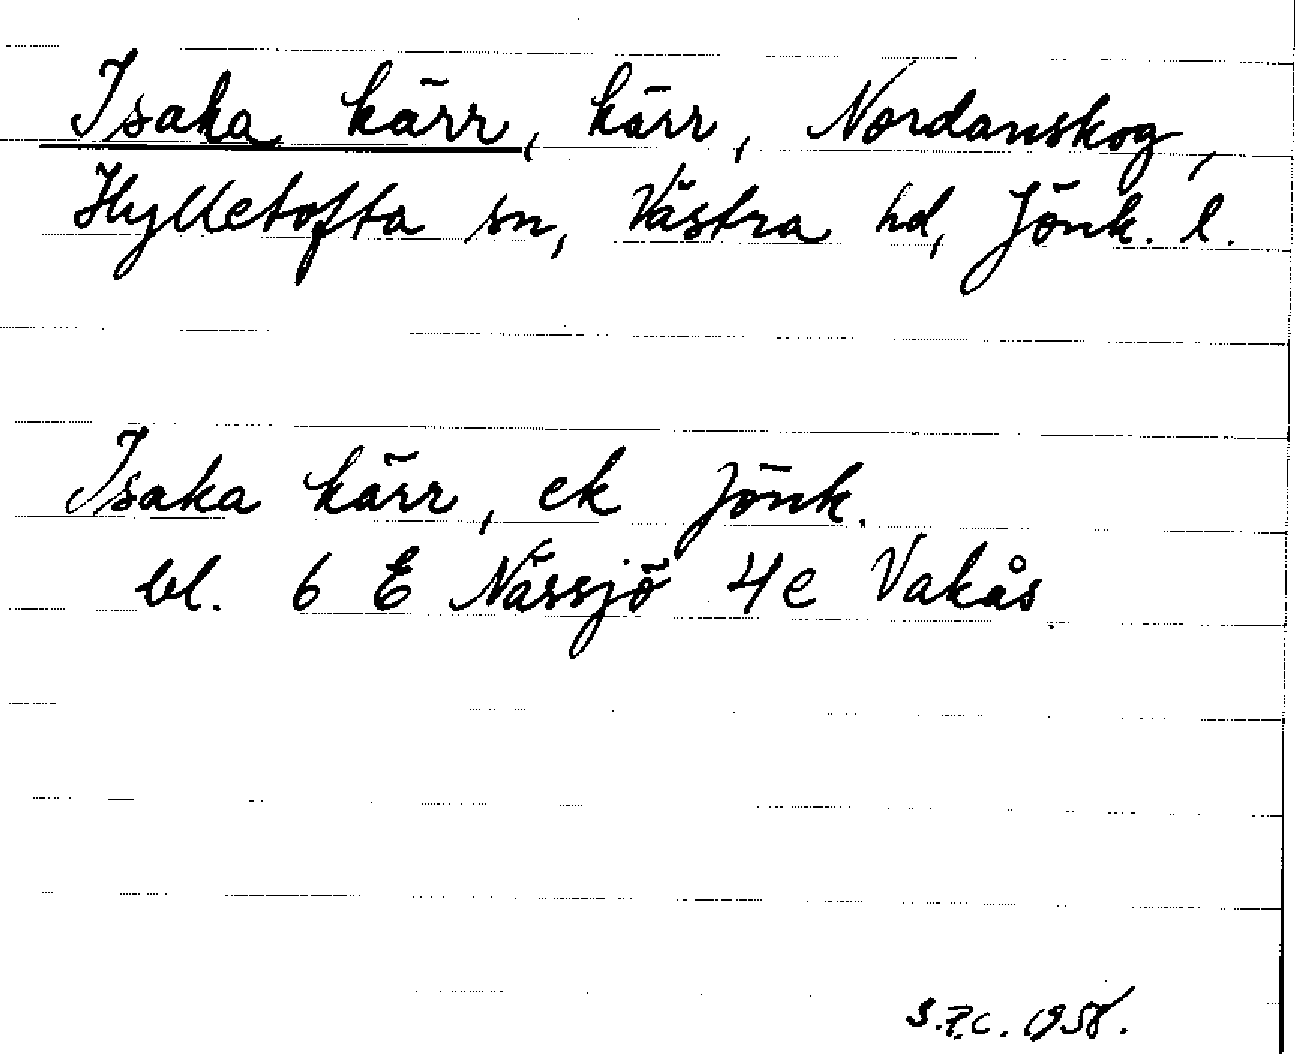 Isaka kärr, kärr, Nordanskog,
Hylletofta sn, Västra hd, Jönk. l.
Isaka kärr, ek Jönk.
bl. 6 E Nässjö 4e Vakås.
1958.